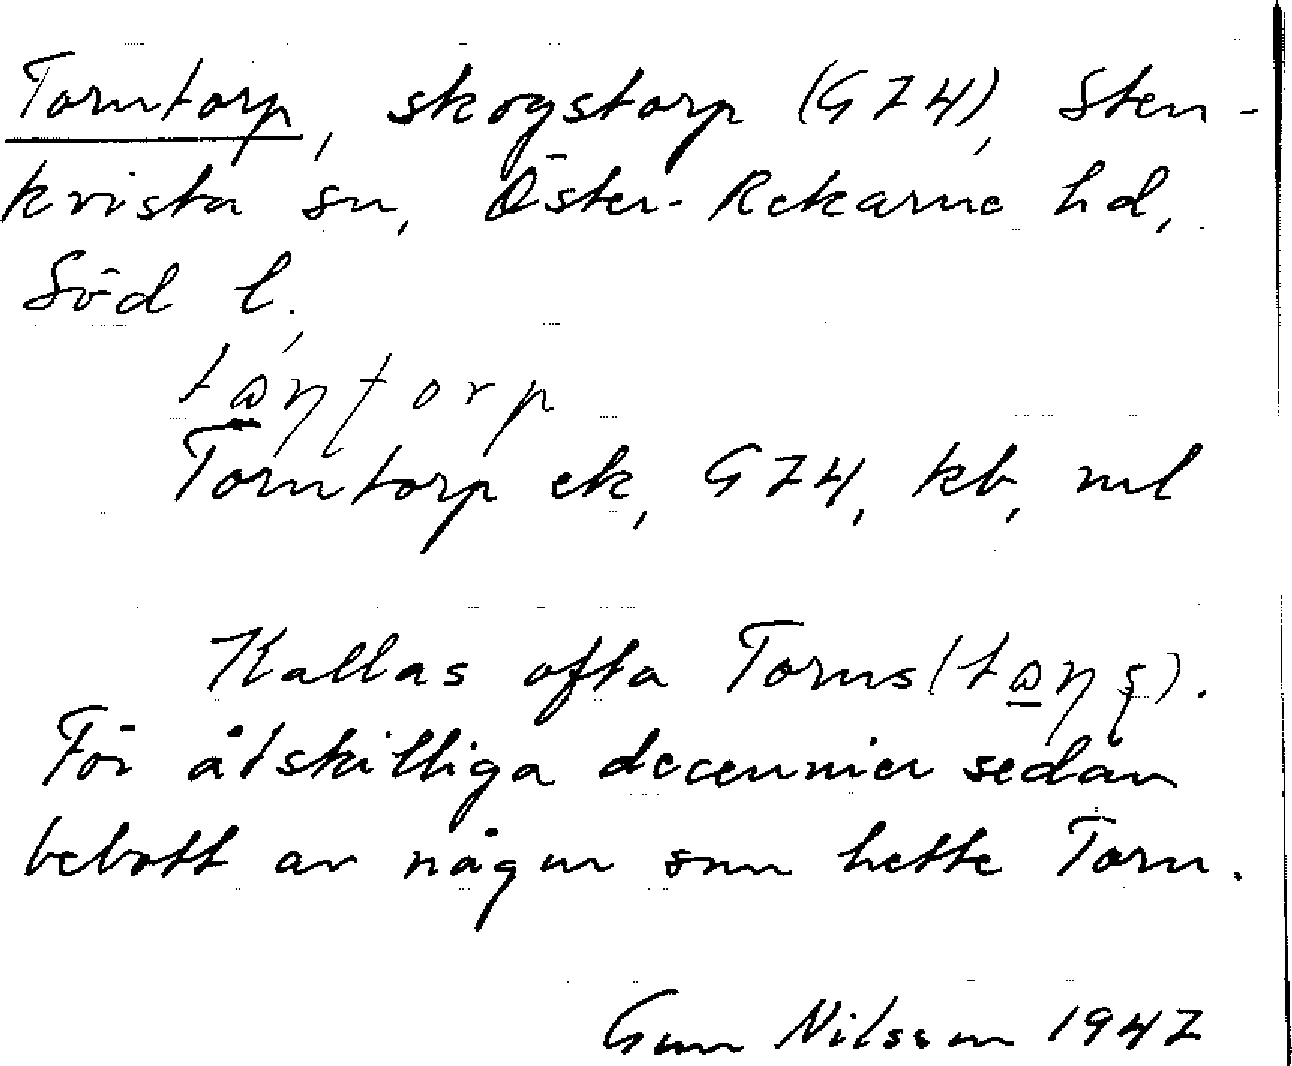 Torntorp, skogstorp (G74), Sten-
kvista sn, Öster-Rekarne hd,
Söd l.
Torntorp ek, G74, kb, ml
Kallas ofta Torns
För åtskilliga decennier sedan
bebott av någon som hette Torn.
Gun Nilsson 1947